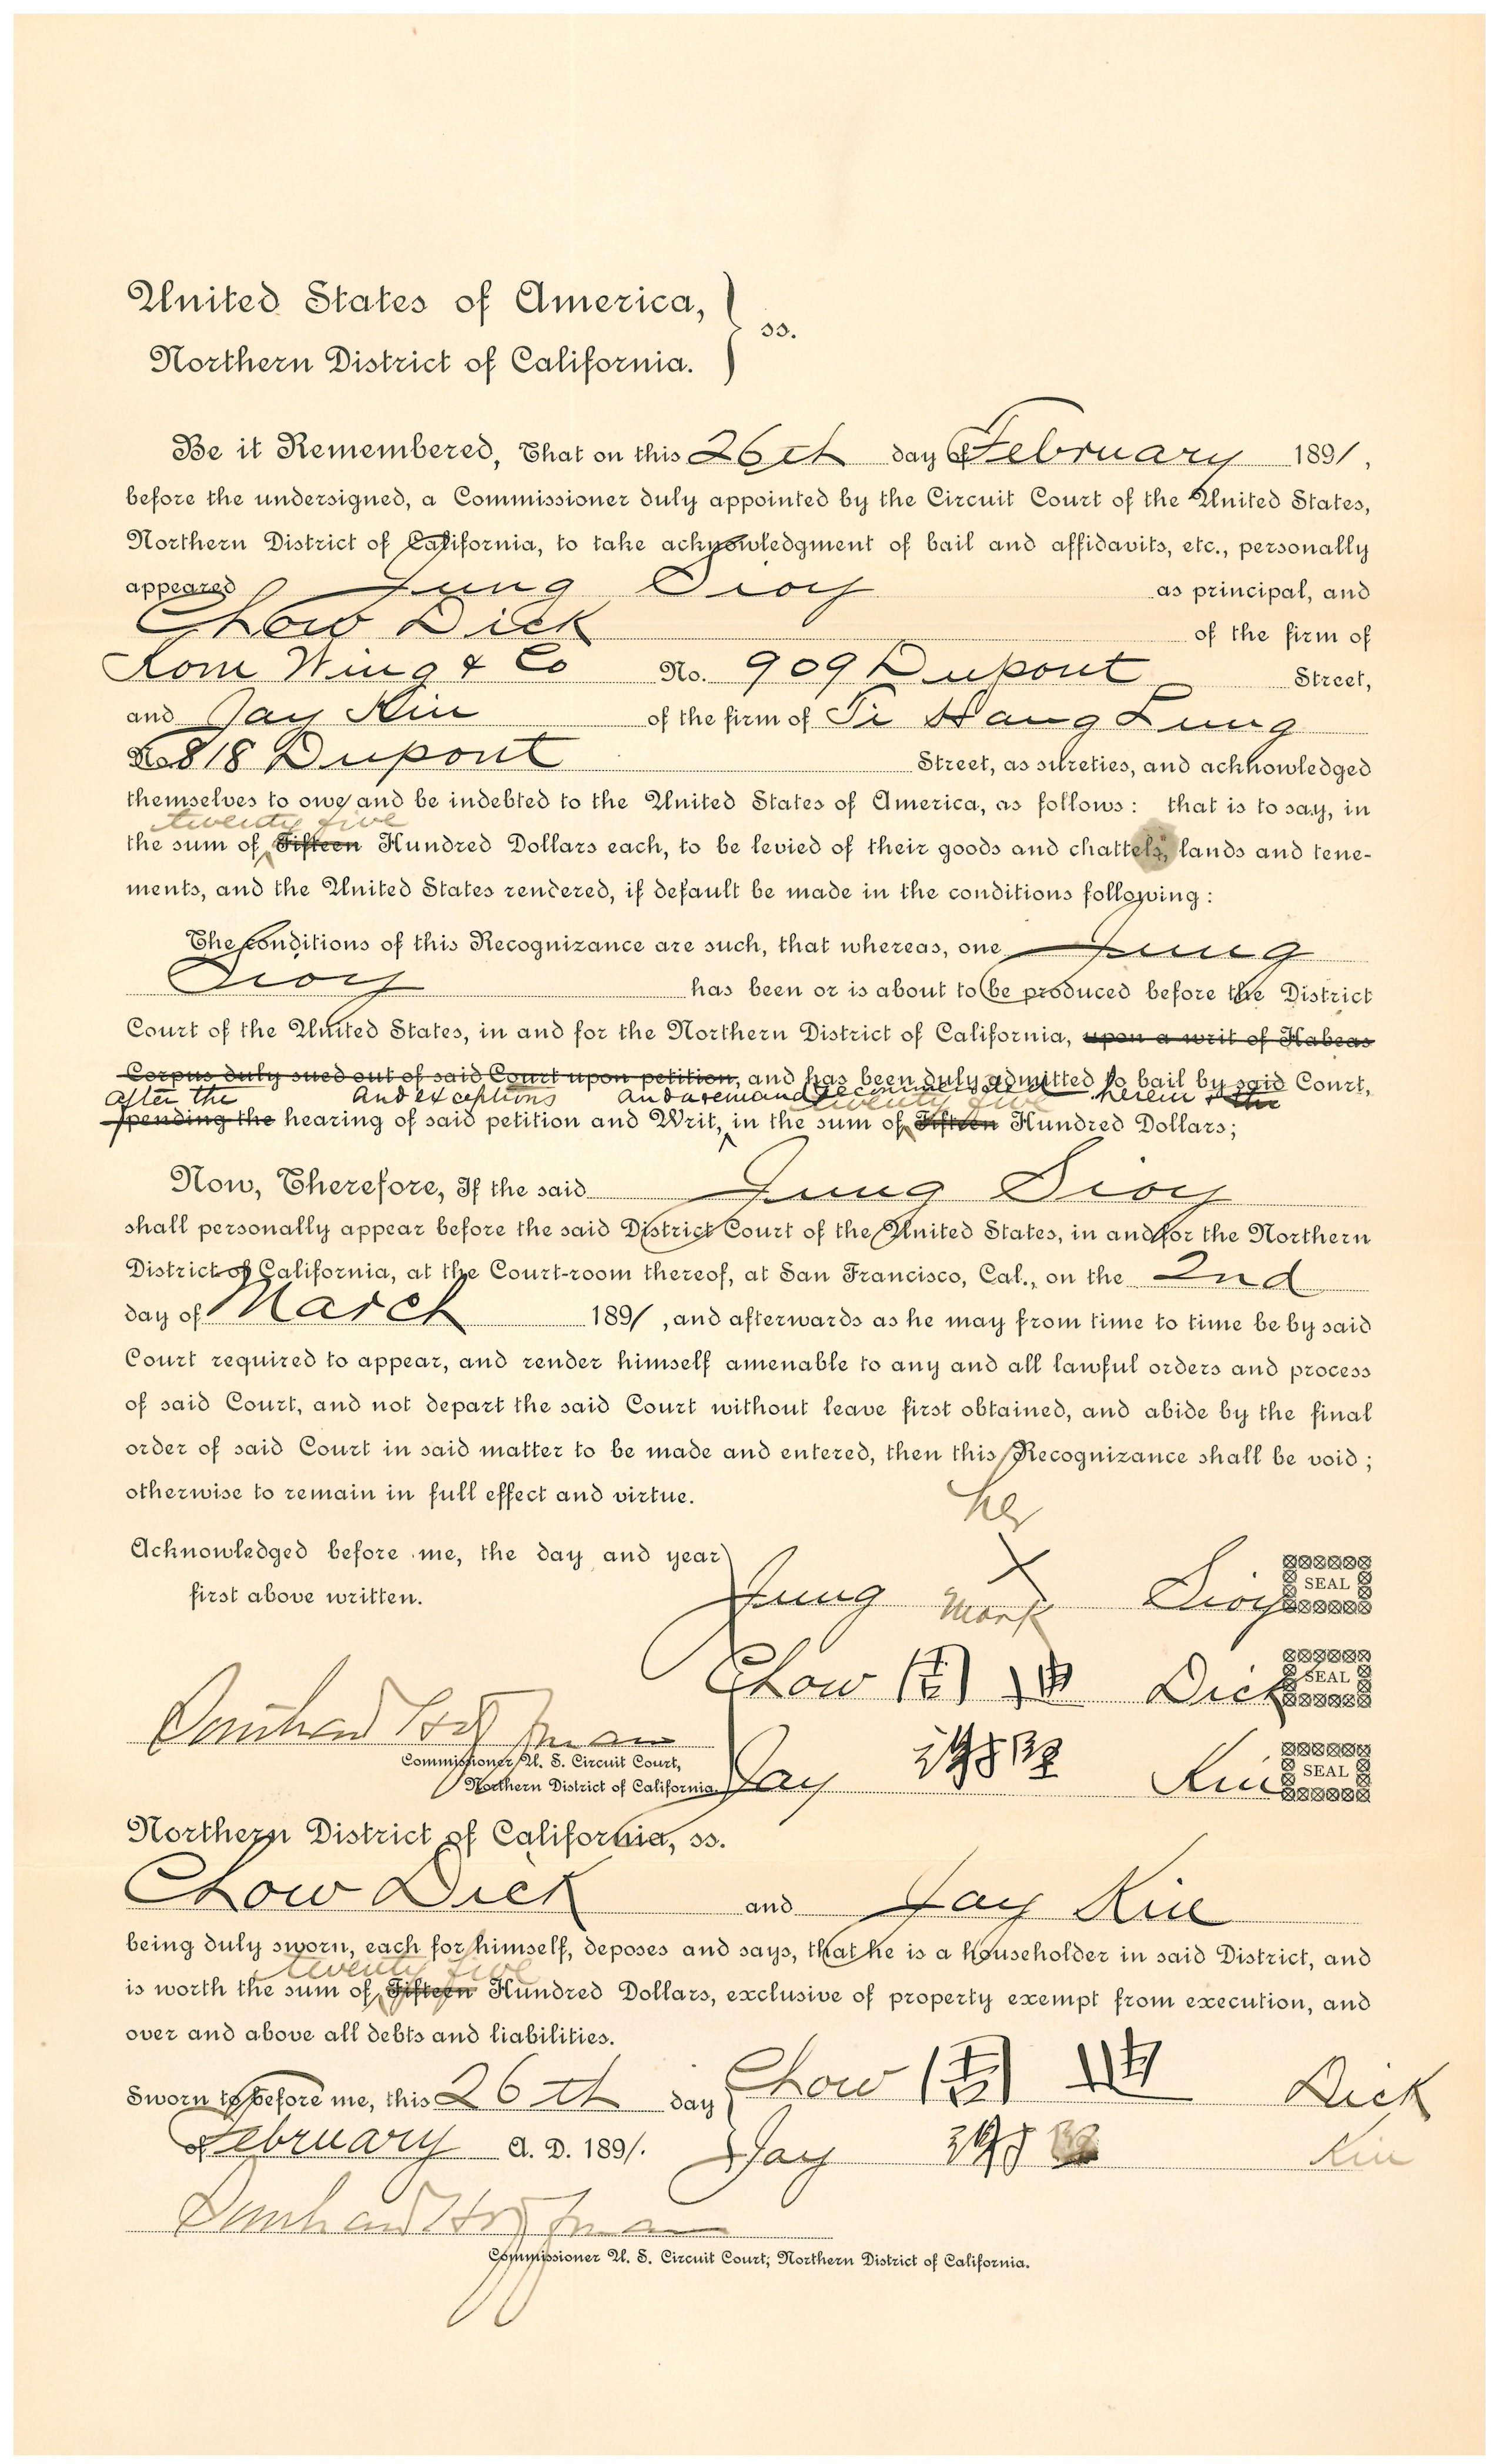 United States of America, } ss.
Northern District of California.
Be it Remembered, That on this 26th day of February 1891,
before the undersigned, a Commissioner duly appointed by the Circuit Court of the United States,
Northern District of California, to take acknowledgment of bail and affidavits, etc., personally
appeared Jung Sioy as principal, and
Chow Dick of the firm of
Kom Wing & Co No. 909 Dupont Street,
and Jay Kin of the firm of Ti Hang Lung
No 818 Dupont Street, as sureties, and acknowledged
themselves to owe and be indebted to the United States of America, as follows: that is to say, in
twenty five
the sum of Fifteen Hundred Dollars each, to be levied of their goods and chattels, lands and tene-
ments, and the United States rendered, if default be made in the conditions following:
The conditions of this Recognizance are such, that whereas, one Jung
Sioy has been or is about to be produced before the District
Court of the United States, in and for the Northern District of California, upon a writ of Habeas
Corpus duly sued out of said Court upon petition, and has been duly admitted to bail by said Court,
after the and exceptions and a remand herein & the
twenty five
pending the hearing of said petition and Writ, in the sum of Fifteen Hundred Dollars;
Now, Therefore, If the said Jung Sioy
shall personally appear before the said District Court of the United States, in and for the Northern
District of California, at the Court-room thereof, at San Francisco, Cal., on the 2nd
day of March 1891, and afterwards as he may from time to time be by said
Court required to appear, and render himself amenable to any and all lawful orders and process
of said Court, and not depart the said Court without leave first obtained, and abide by the final
order of said Court in said matter to be made and entered, then this Recognizance shall be void;
otherwise to remain in full effect and virtue.
her
Acknowledged before me, the day and year
first above written.
Jung X Sioy SEAL
mark
Chow 周 迪 Dick SEAL
Hoffman
Commissioner U. S. Circuit Court,
Northern District of California.
Jay Kin SEAL
Northern District of California, ss.
Chow Dick and Jay Kin
being duly sworn, each for himself, deposes and says, that he is a householder in said District, and
twenty five
is worth the sum of Fifteen Hundred Dollars, exclusive of property exempt from execution, and
over and above all debts and liabilities.
Sworn to before me, this 26th day
Chow 周 迪 Dick
of February A. D. 1891.
Jay Kin
Hoffman
Commissioner U. S. Circuit Court, Northern District of California.